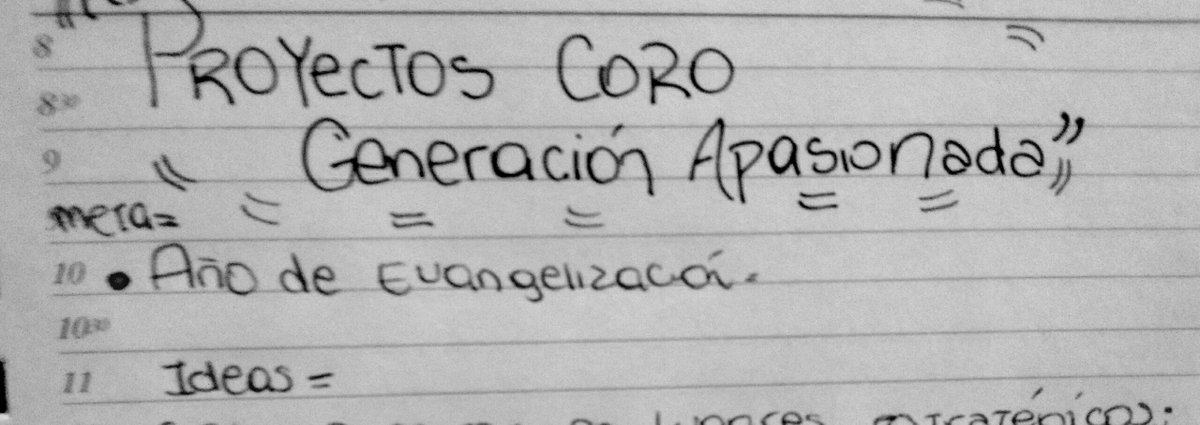 8 "PROYECTOS CORO
8³⁰
9 Generación Apasionada"
meta=
10 • Año de Evangelización.
10³⁰
11 Ideas =
lugares estratégicos: